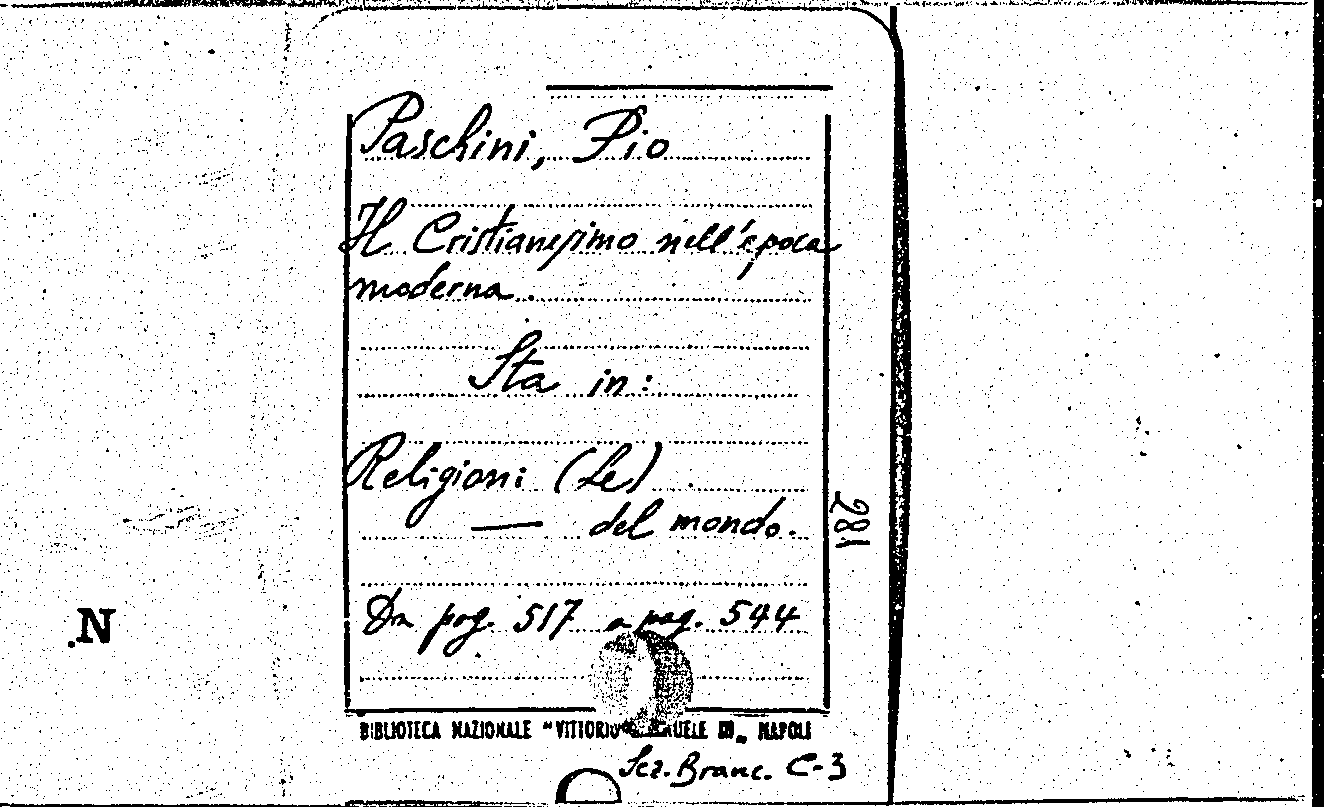 Paschini, Pio
Il Cristianesimo nell'epoca
moderna.
Sta in:
Religioni (Le)
— del mondo.
Da pag. 517 a pag. 544
281
.N
BIBLIOTECA NAZIONALE "VITTORIO EMANUELE III„ NAPOLI
Sez. Branc. C-3